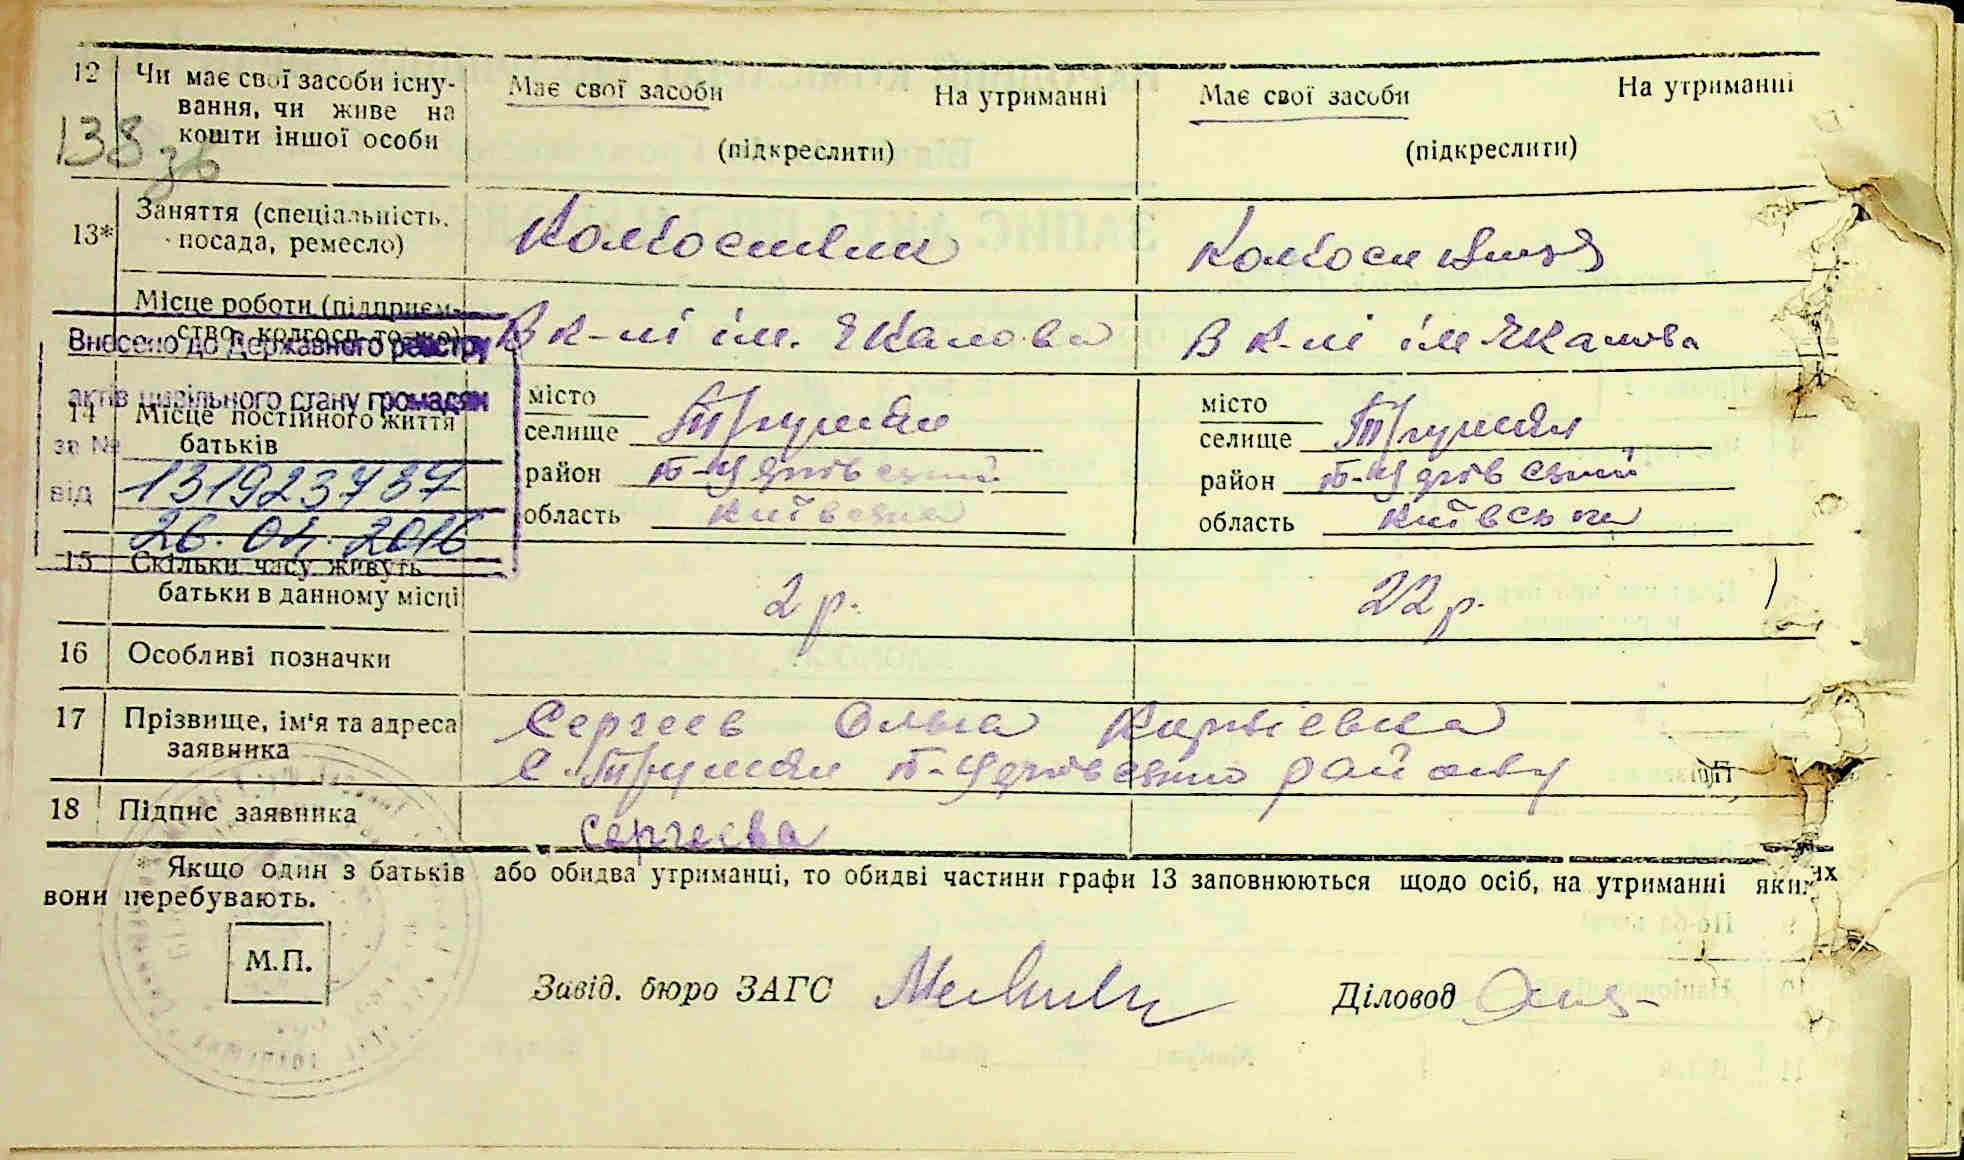 12 Чи має свої засоби існу- Має свої засоби На утриманні Має свої засоби На утриманні
вання, чи живе на
кошти іншої особи (підкреслити) (підкреслити)
138 зв
13* Заняття (спеціальність,
посада, ремесло)
Місце роботи (підприєм-
ство, колгосп то-що) В к-пі ім. Чкалова В к-пі ім Чкалова
Внесено до Державного реєстру
актів цивільного стану громадян
за № 131923737
від 26.04.2016
14 Місце постійного життя
батьків
місто місто
селище селище
район район
область Київська область Київська
15 Скільки часу живуть
батьки в данному місці 2 р. 22 р.
16 Особливі позначки
17 Прізвище, ім'я та адреса Сергеев Ольга
заявника району
18 Підпис заявника Сергеева
* Якщо один з батьків або обидва утриманці, то обидві частини графи 13 заповнюються щодо осіб, на утриманні яких
вони перебувають.
М.П.
Завід. бюро ЗАГС Діловод